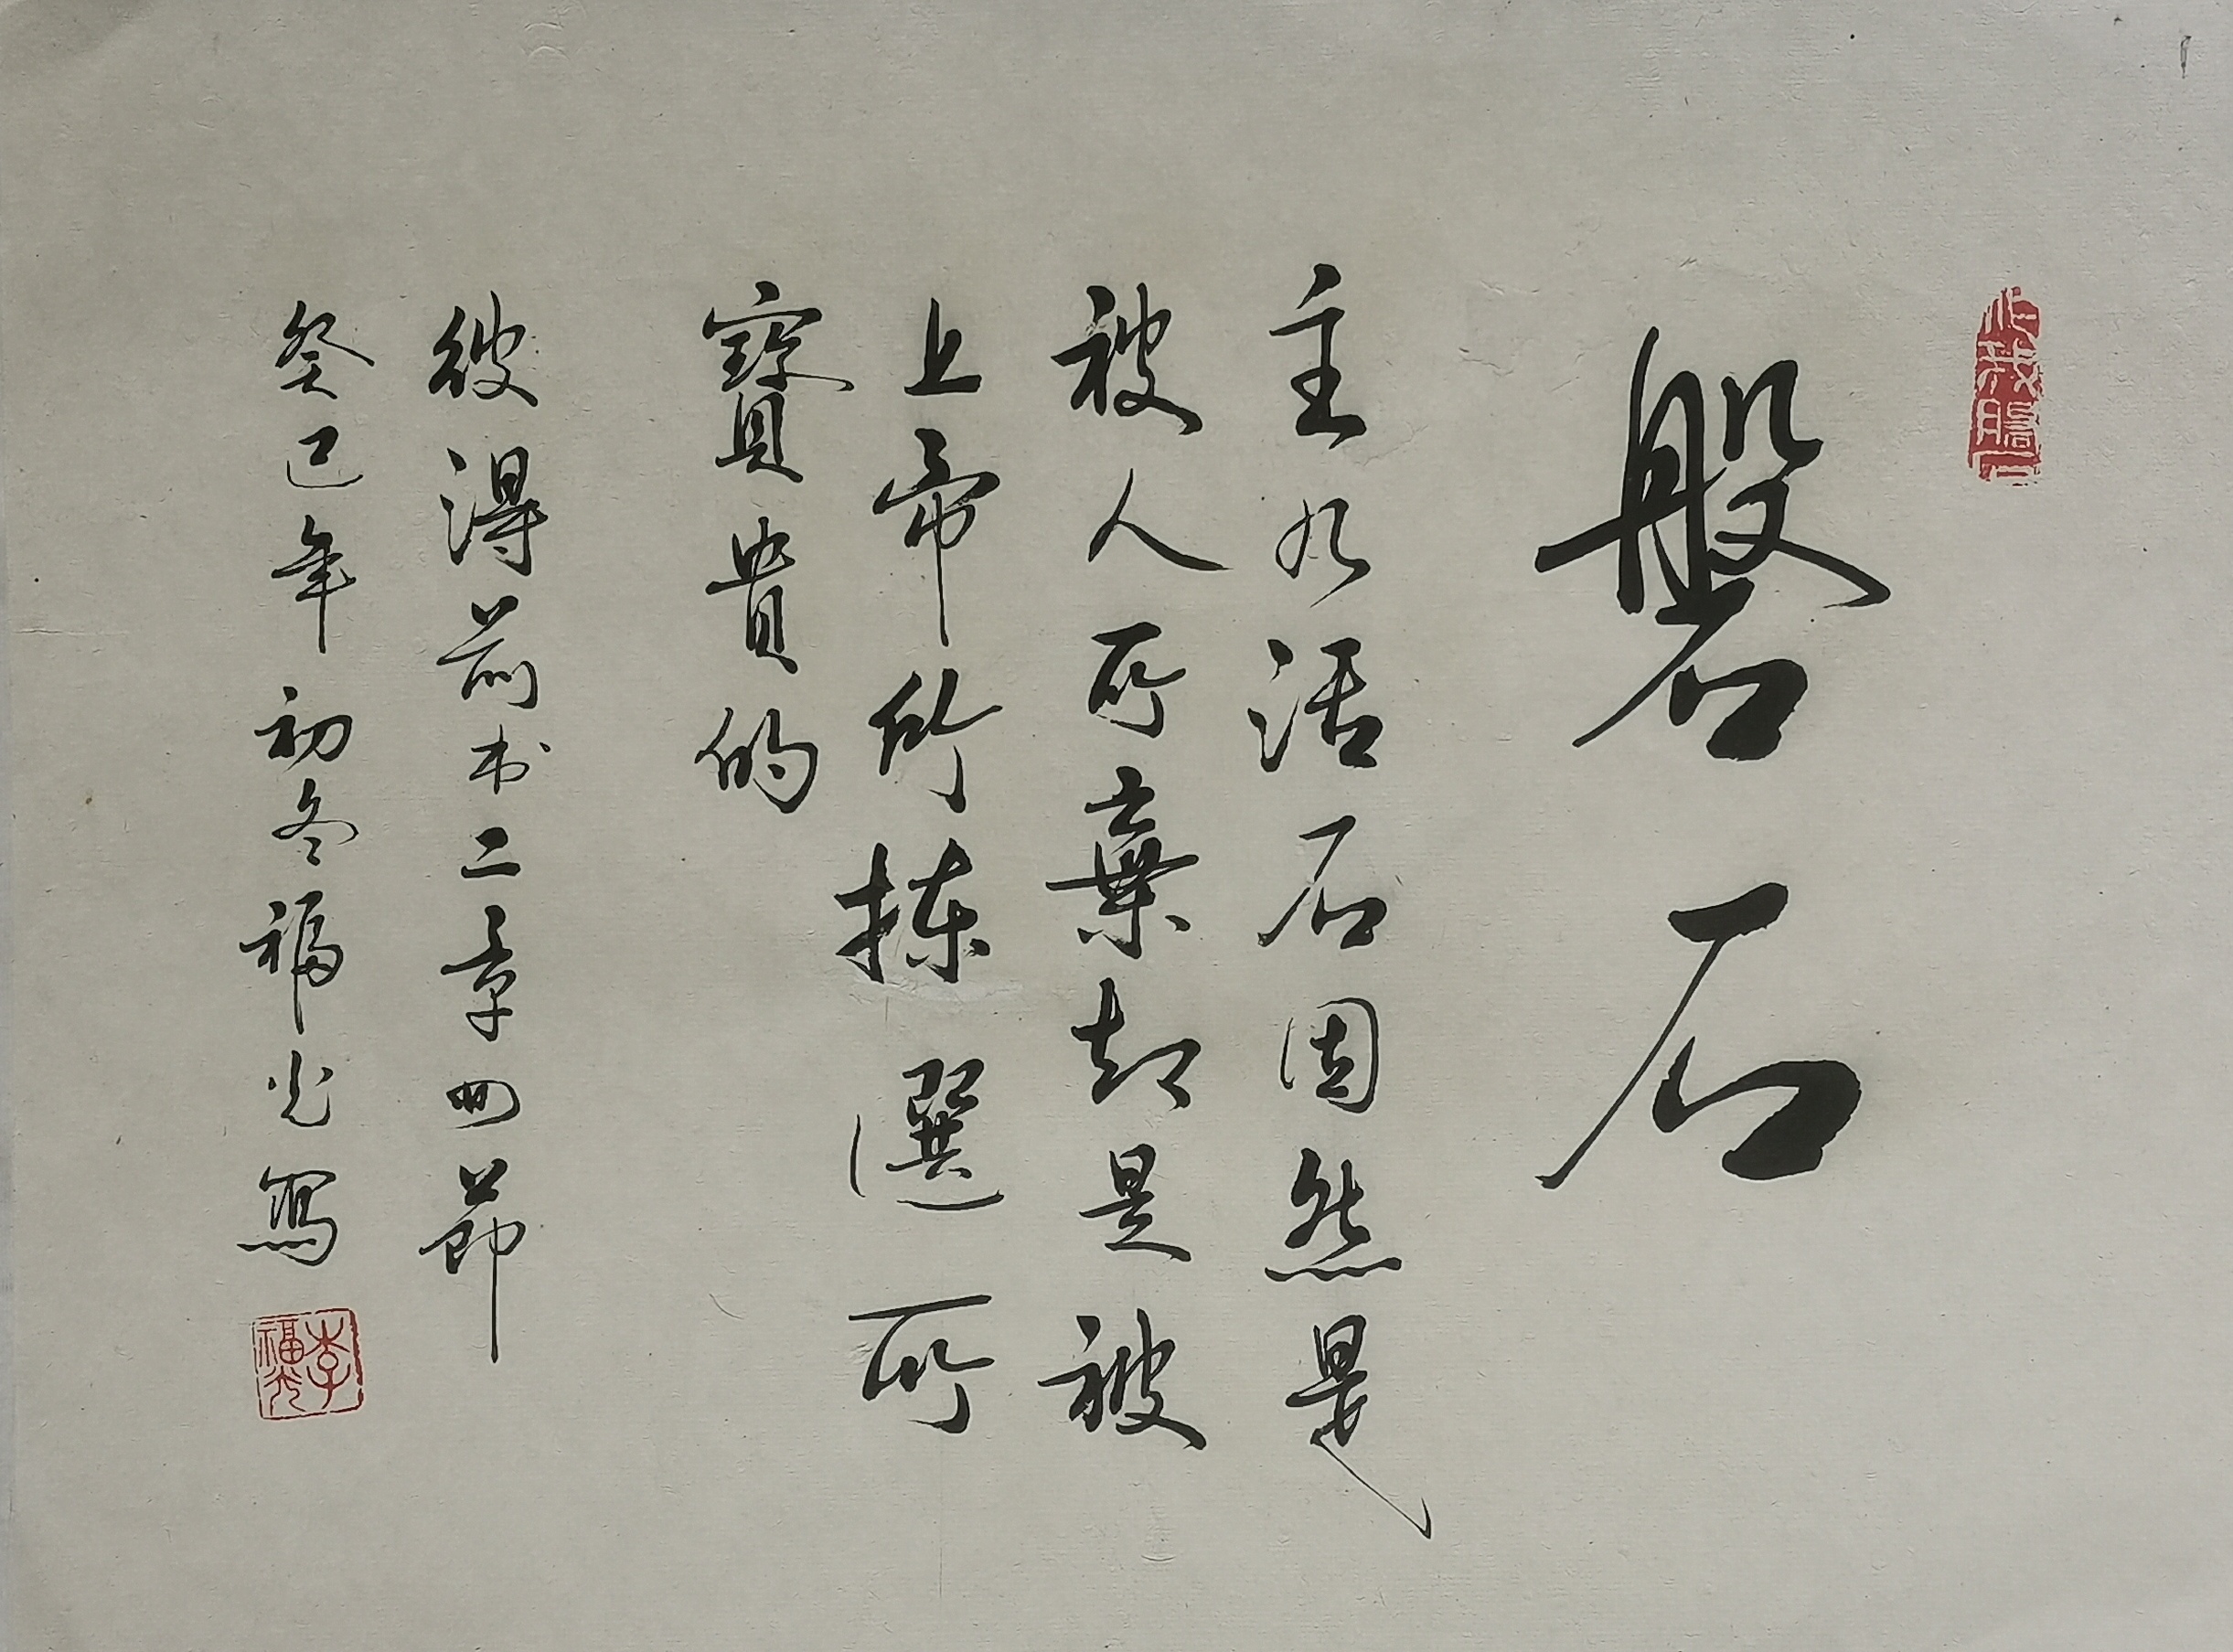 磐石
主乃活石固然是
被人所棄却是被
上帝所揀選所
寶貴的
彼得前书二章四節
癸巳年初冬福光寫
李福光